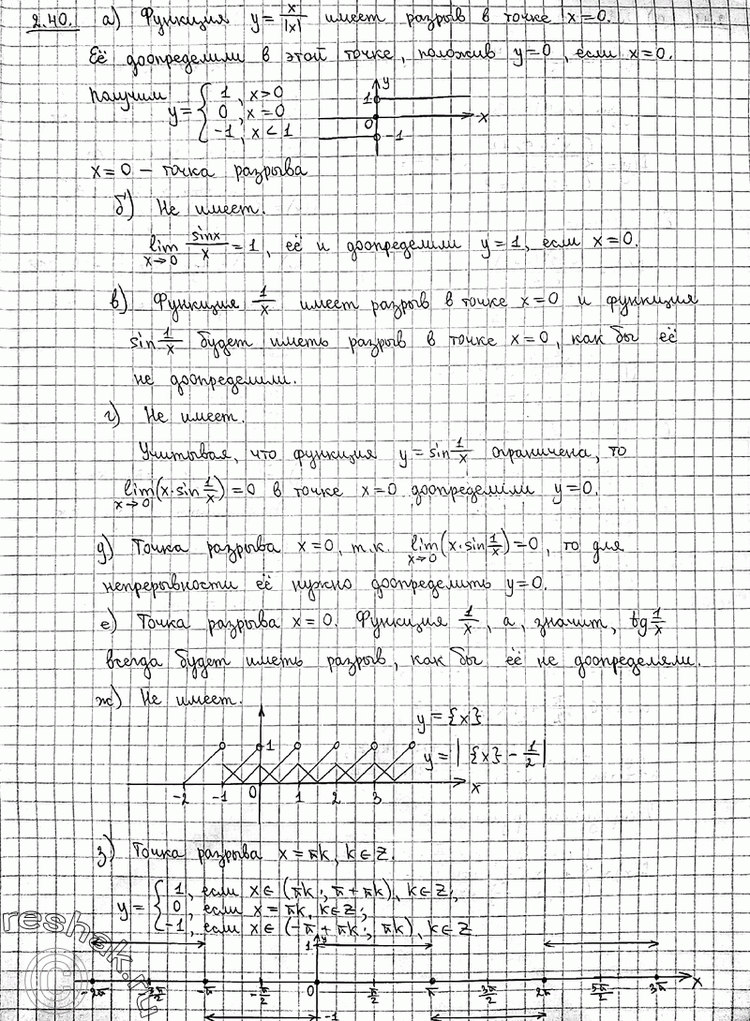 2.40. а) Функция y = x/|x| имеет разрыв в точке x=0.
Её доопределили в этой точке, положив y=0, если x=0.
Получим y = { 1, x>0
0, x=0
-1, x<1
y
1
0
x
-1
x=0 – точка разрыва
б) Не имеет.
lim x→0 sinx/x = 1, её и доопределили y=1, если x=0.
в) Функция 1/x имеет разрыв в точке x=0 и функция
sin 1/x будет иметь разрыв в точке x=0, как бы её
не доопределили.
г) Не имеет.
Учитывая, что функция y = sin 1/x ограничена, то
lim x→0 (x·sin 1/x) = 0 в точке x=0 доопределили y=0.
д) Точка разрыва x=0, т.к. lim x→0 (x·sin 1/x) = 0, то для
непрерывности её нужно доопределить y=0.
е) Точка разрыва x=0. Функция 1/x, а, значит, tg 1/x
всегда будет иметь разрыв, как бы её не доопределяли.
ж) Не имеет.
y = {x}
1
y = | {x} - 1/2 |
-2 -1 0 1 2 3 x
з) Точка разрыва x = πk, k∈Z.
y = { 1, если x∈(πk; π+πk), k∈Z;
0, если x=πk, k∈Z;
-1, если x∈(-π+πk; πk), k∈Z
1 y
-2π -3π/2 -π -π/2 0 π/2 π 3π/2 2π 5π/2 3π x
-1
reshak.ru
©